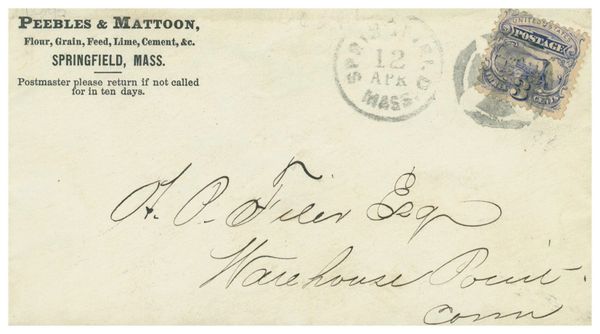 PEEBLES & MATTOON,
Flour, Grain, Feed, Lime, Cement, &c.
SPRINGFIELD, MASS.
Postmaster please return if not called
for in ten days.
SPRINGFIELD
12
APR
MASS
UNITED STATES
POSTAGE
3
CENTS
A. P. Filer Esq
Warehouse Point.
Conn